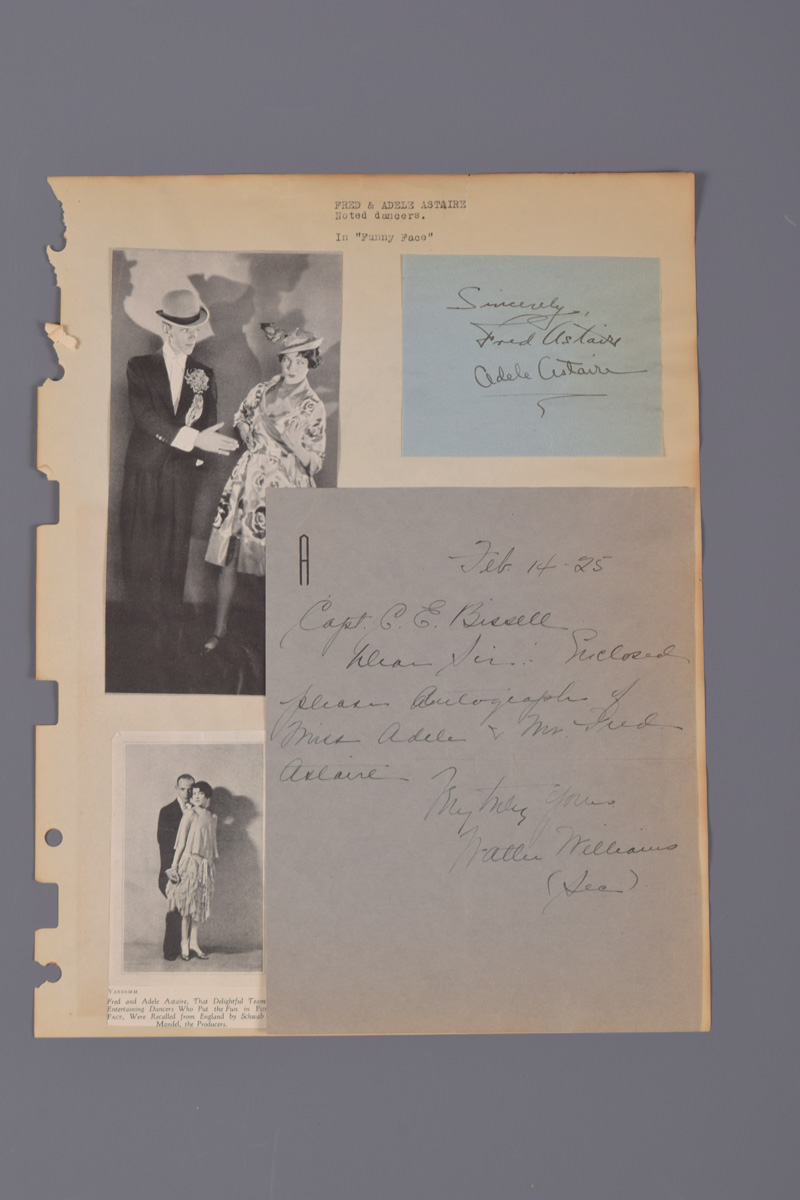 FRED & ADELE ASTAIRE
Noted dancers.
In "Funny Face"
Sincerely,
Fred Astaire
Adele Astaire
A
Feb. 14-25
Capt. C. E. Bissell
Dear Sir:- Enclosed
please Autographs of
Miss Adele & Mr. Fred
Astaire
Very truly yours
Walter Williams
(Sec)
VANDAMM
Fred and Adele Astaire, That Delightful Team
Entertaining Dancers Who Put the Fun in
FACE, Were Recalled from England by Schwab
Mandel, the Producers.